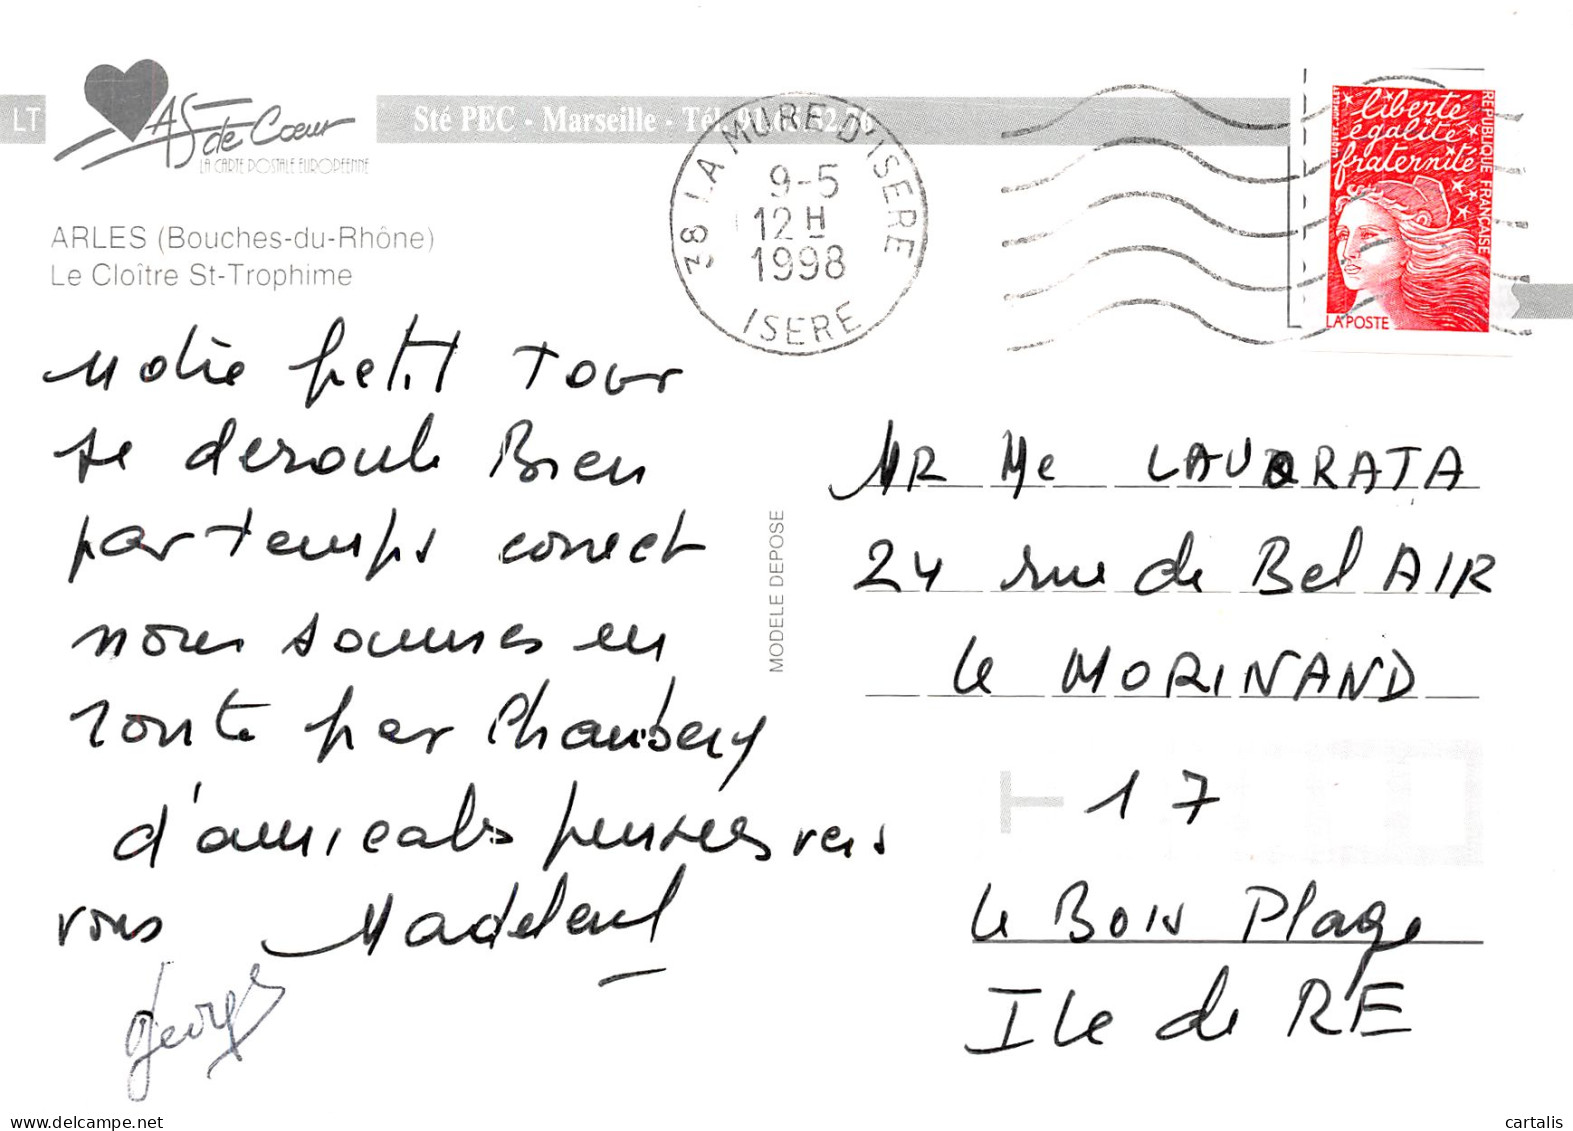 LT
AS de Cœur
LA CARTE POSTALE EUROPÉENNE
Sté PEC - Marseille - Tél. 91.68.52.76
ARLES (Bouches-du-Rhône)
Le Cloître St-Trophime
38 LA MURE D'ISERE
9-5
12 H
1998
ISERE
liberté
égalité
fraternité
REPUBLIQUE FRANÇAISE
LUQUET
JUMELET
LA POSTE
Notre petit Tour
se deroule Bien
par temps correct
nous sommes en
route par Chambery
d'amicales pensées vers
vous Madeleine
Georges
MODELE DEPOSE
MR Me LAVORATA
24 rue de Bel AIR
Le MORINAND
17
Le BOIS Plage
ILe de RE
cartalis
www.delcampe.net